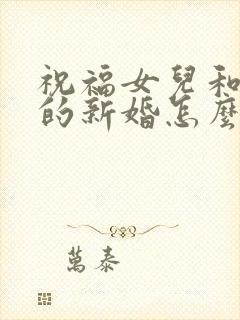 祝福女兒和
的新婚怎麼
萬泰